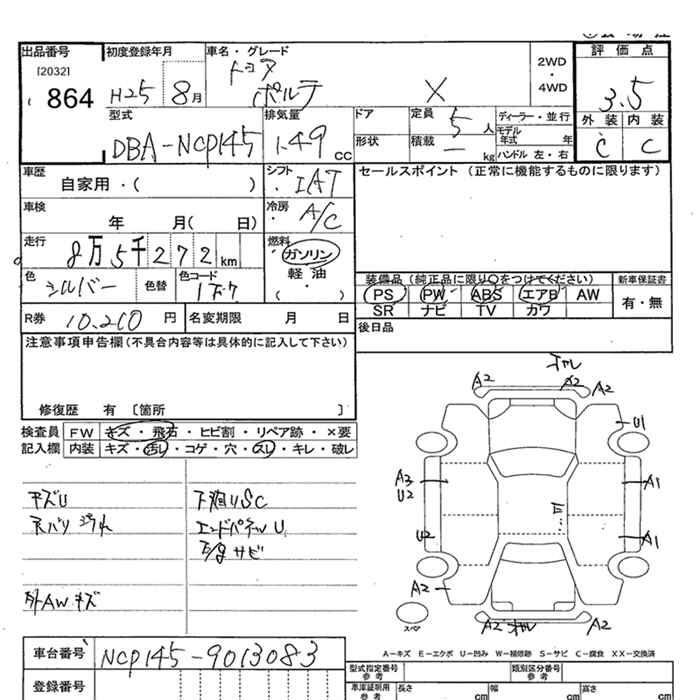 出品番号 初度登録年月 車名・グレード 2WD ・ 4WD 評価点
[2032]
864 H25 8月 トヨタ ポルテ X 3.5
型式 排気量 ドア 定員 5人 ディーラー・並行 外装 内装
DBA-NCP145 1.49cc 形状 積載 kg モデル年式 年 ハンドル 左・右 C C
車歴 シフト セールスポイント(正常に機能するものに限ります)
自家用・( ) IAT
車検 冷房
年 月( 日) A/C
走行 燃料
8万5千272km ガソリン
色 色替 色コード 軽油 装備品(純正品に限り○をつけてください) 新車保証書
シルバー ・( ) PS PW ABS エアB AW 有・無
SR ナビ TV カワ
R券 10.210円 名変期限 月 日 後日品
注意事項申告欄(不具合内容等は具体的に記入して下さい)
修復歴 有 [箇所 ]
検査員 FW キズ・飛石・ヒビ割・リペア跡・×要
記入欄 内装 キズ・汚れ・コゲ・穴・スレ・キレ・破レ
A2 A2 A2
U1
A3 U2 A1
キズU 下廻りSC
天バリ エンドパネルU U2 A1
サビ
A2
外AWキズ
スペア A2 A2
A-キズ E-エクボ U-凹み W-補修跡 S-サビ C-腐食 XX-交換済
車台番号 NCP145-9013083
型式指定番号 参考 類別区分番号 参考
登録番号 車庫証明用 参考 長さ cm 幅 cm 高さ cm